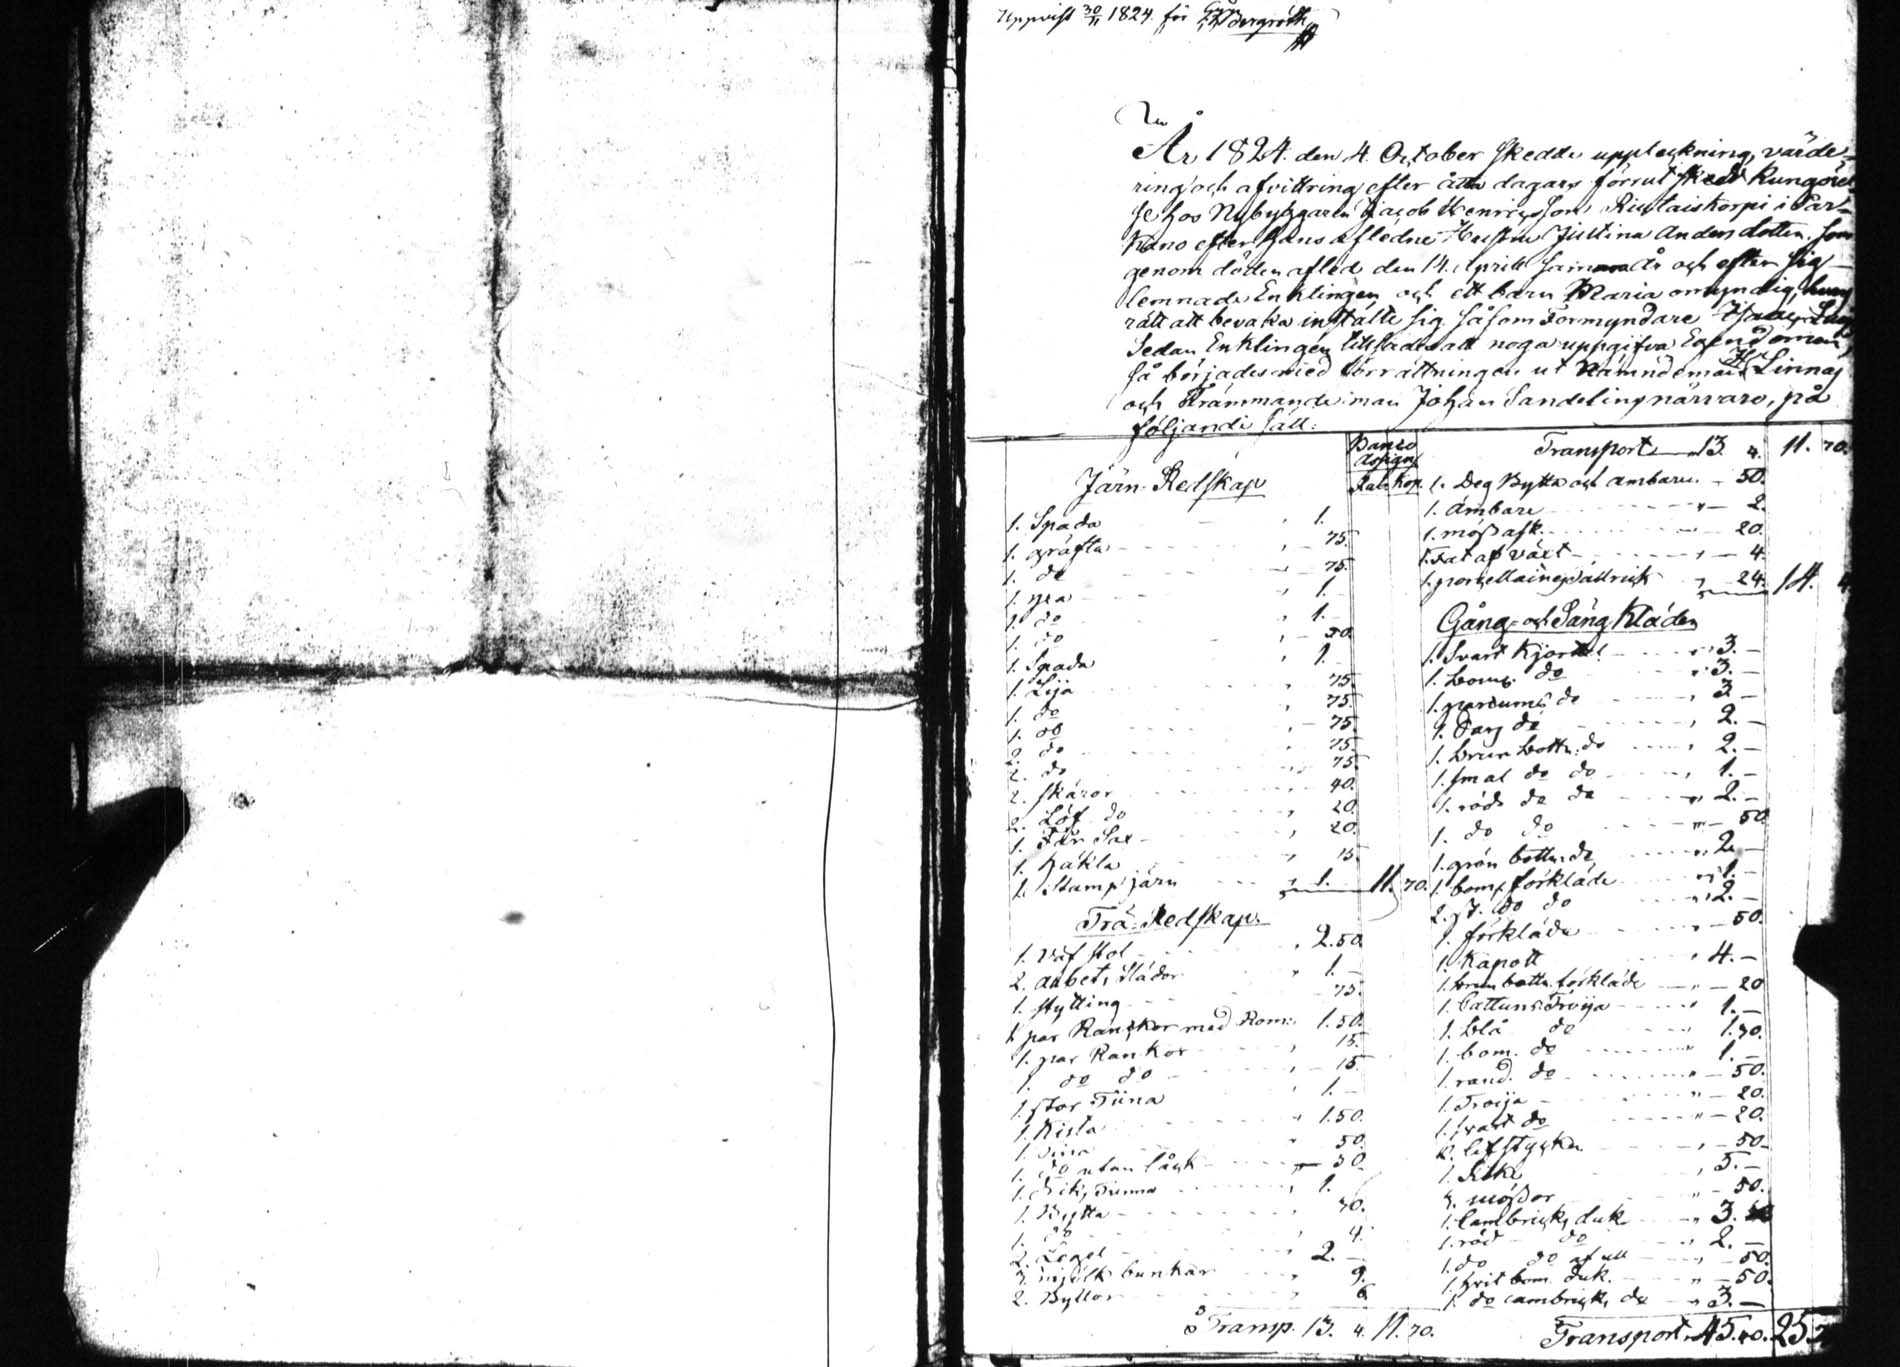 Uppvist 30/11 1824. för Bergroth
År 1824. den 4. October skedde uppteckning, värde-
ring och afvittring efter åtta dagars förrut skedd Kungörel
se hos Nybyggaren Jacob Henricsson Riutaiskorpi i Par-
kano efter hans afledne Hustru Justina Andersdotter. som
genom döden afled den 14. Aprill samma år och efter sig
lemnade Enklingen och ett barn Maria omyndig, hvars
rätt att bevaka instälte sig såsom Förmyndare
Sedan Enklingen tillsades att noga uppgifva Egendomen
så börjades med förrättningen ut Nämndeman H. Linnas
och Främmande man Johan Sandelins närvaro, på
följande sätt:
Banco Assign.
Rub. Kop.
Järn-Redskap
1. Spada 1.
1. gräfta 75.
1. do 75.
1. yxa 1.
1. do 1.
1. do 50.
1. Spada 1.
1. Lija 75.
1. do 75.
1. do 75.
2. do 75.
2. do 75.
2. skäror 40.
2. Löf do 20.
1. Får Sax 20.
1. Häkla 15.
1. Stampjärn 1. 11. 70.
Trä-Redskap.
1. Väfstol 2.50.
2. arbets slädor 1.
1. skytting 75.
1. par Ranckor med Rom: 1.50.
1. par Rankor 15.
1. do do 15.
1. stor Tiina 1.
1. Kista 1.50.
1. 50.
1. do utan låck 30.
1. Tunna 1.
1. Bytta 30.
1. do 4.
2. 2.
3. mjölk bunkar 9.
2. Byttor 6.
Transp. 13. 4. 11. 70.
Transport 13. 4. 11. 70.
1. Deg Bytta och ambare 50.
1. ämbare 2.
1. mössask 20.
1. Fat af växt 4.
1. porcellains 24. 14. 4.
Gång- och Säng Kläder
1. Svart Kjortel 3.
1. bom. do 3.
1. do 3.
1. do 2.
1. brun bottn. do 2.
1. smal do do 1.
1. röd do do 2.
1. do do 50.
1. grön bottn. do 2.
1. bom. förkläde 1.
2. st. do do 2.
1. förkläde 50.
1. Kapott 4.
1. brun bottn. förkläde 20
1. Cattuns Tröija 1.
1. blå do 1.50.
1. bom. do 1.
1. rand. do 50.
1. Tröija 20.
1. svart do 20.
2. lifstycken 50.
1. 5.
3. mössor 50.
1. Cambricks duk 3.
1. röd do 2.
1. do do af ull 50.
1. hvit bom. duk 50.
1. do cambricks do 3.
Transport 45. 40. 25.